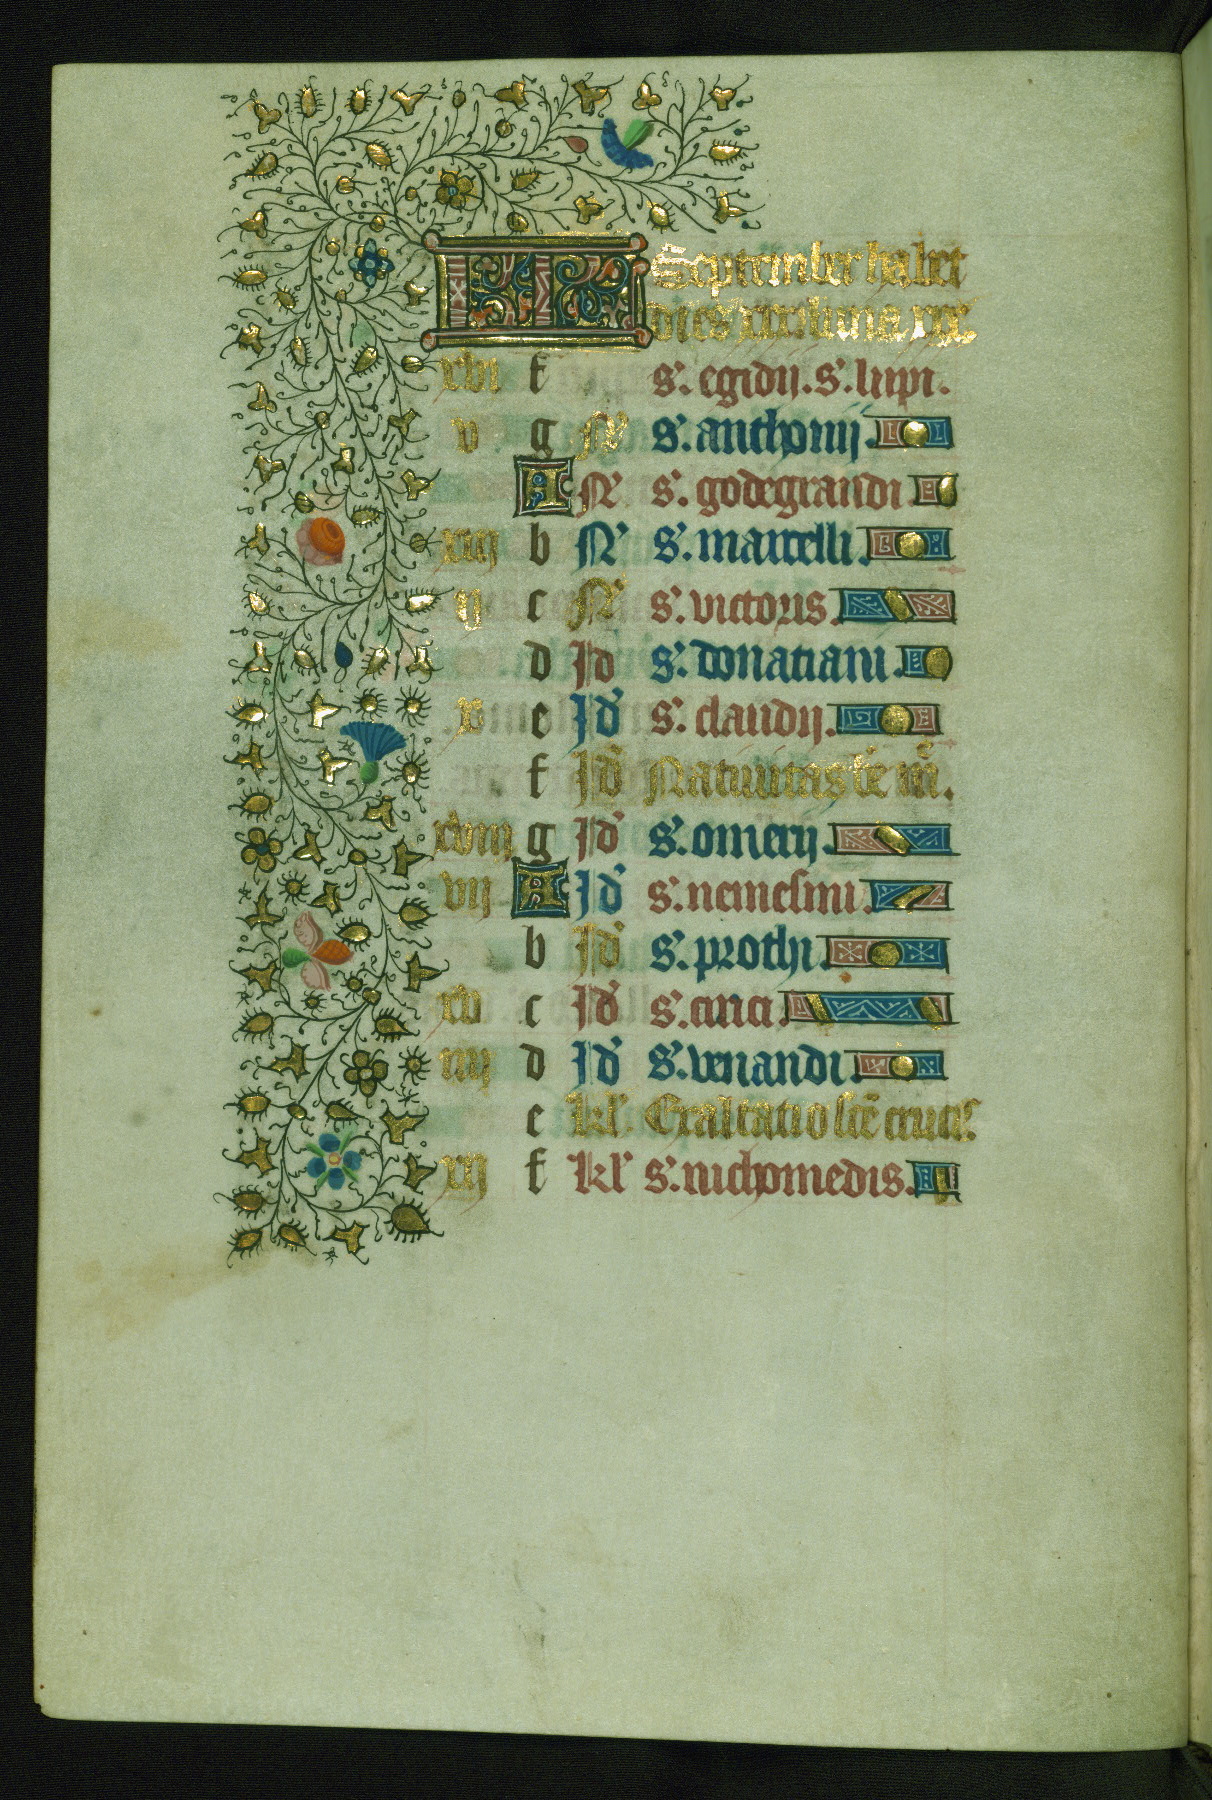 KL September habet
dies xxx luna xxx.
xvi f s. egidij. s. lupi.
v g N s. anthonij.
A N s. godegrandi
xiij b N s. marcelli.
ij c N s. victoris.
d Id s. donatiani.
x e Id s. claudij.
f Id Natiuitas be m.
xviij g Id s. omerij.
vij A Id s. nemesini.
b Id s. prothi.
xv c Id s. cirici.
iiij d Id s. venandi.
e kl Exaltatio sce crucis
xij f kl s. nichomedis.